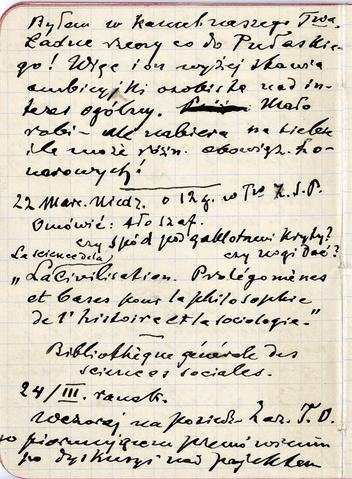 Byłem w Kasie naszego Twa.
Ładne rzeczy co do Pułaskie-
go! Więc i on wyżej stawia
ambicyjki osobiste nad in-
teres ogólny. Mało
robi - ale nabiera na siebie
ile może różn. obowiąz. ho-
norowych!
22 Marc. Niedz. o 12 g. w Tw Z.S.P.
Omówić: tło szaf.
czy spód pod gablotami kryty?
La science de la czy nogi dać?
"La Civilisation. Prolégomènes
et bases pour la philosophie
de l'histoire et la sociologie."
Bibliothèque générale des
sciences sociales.
24/III. rano
Wczoraj na posiedz. Zarz. T. O.
po przemówieniu
po dyskusji nad projektem